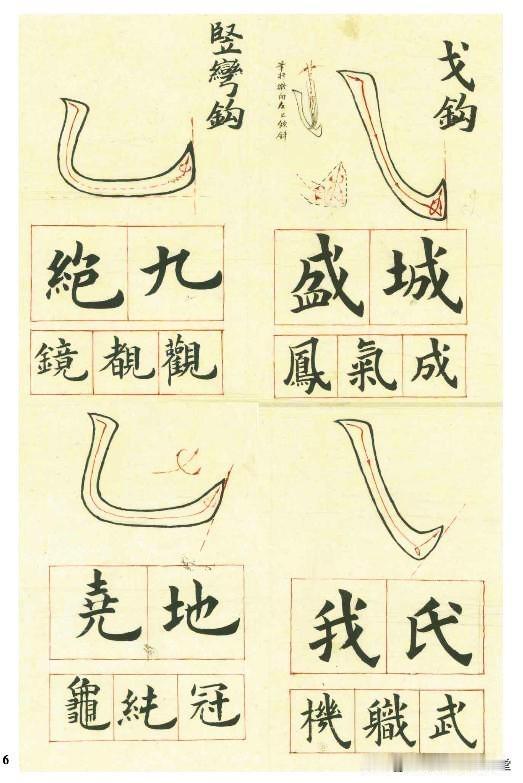 戈鈎
城盛
成氣鳳
氏我
武職機
豎彎鈎
九絶
觀覩鏡
地尭
冠純龜
6